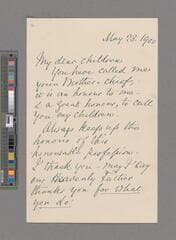 May 28. 1900
My dear children
You have called me
your Mother-Chief,
it is an honour to me
& a great honour, to call
you my children.
Always keep up the
honour of this
honourable profession.
I thank you - may I say
our Heavenly Father
thanks you for what
you do!